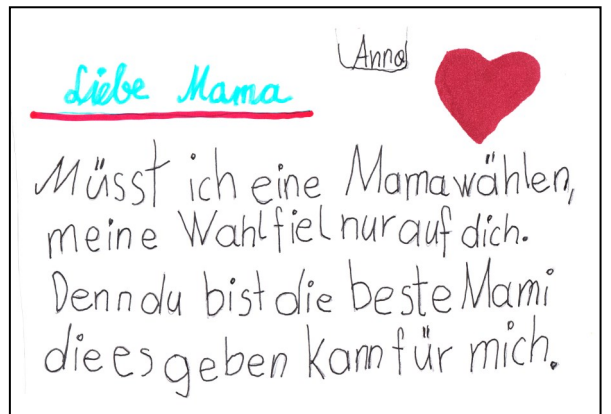 Anna
Liebe Mama
Müsst ich eine Mama wählen,
meine Wahl fiel nur auf dich.
Denn du bist die beste Mami
die es geben kann für mich.